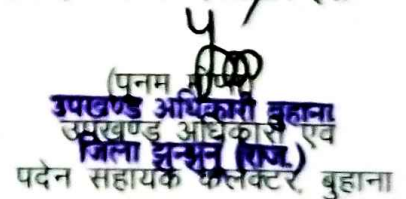 (पुनम
उपखण्ड अधिकारी बुहाना
उपखण्ड अधिकारी एवं
जिला झुन्झुनू (राज.)
पदेन सहायक कलेक्टर, बुहाना